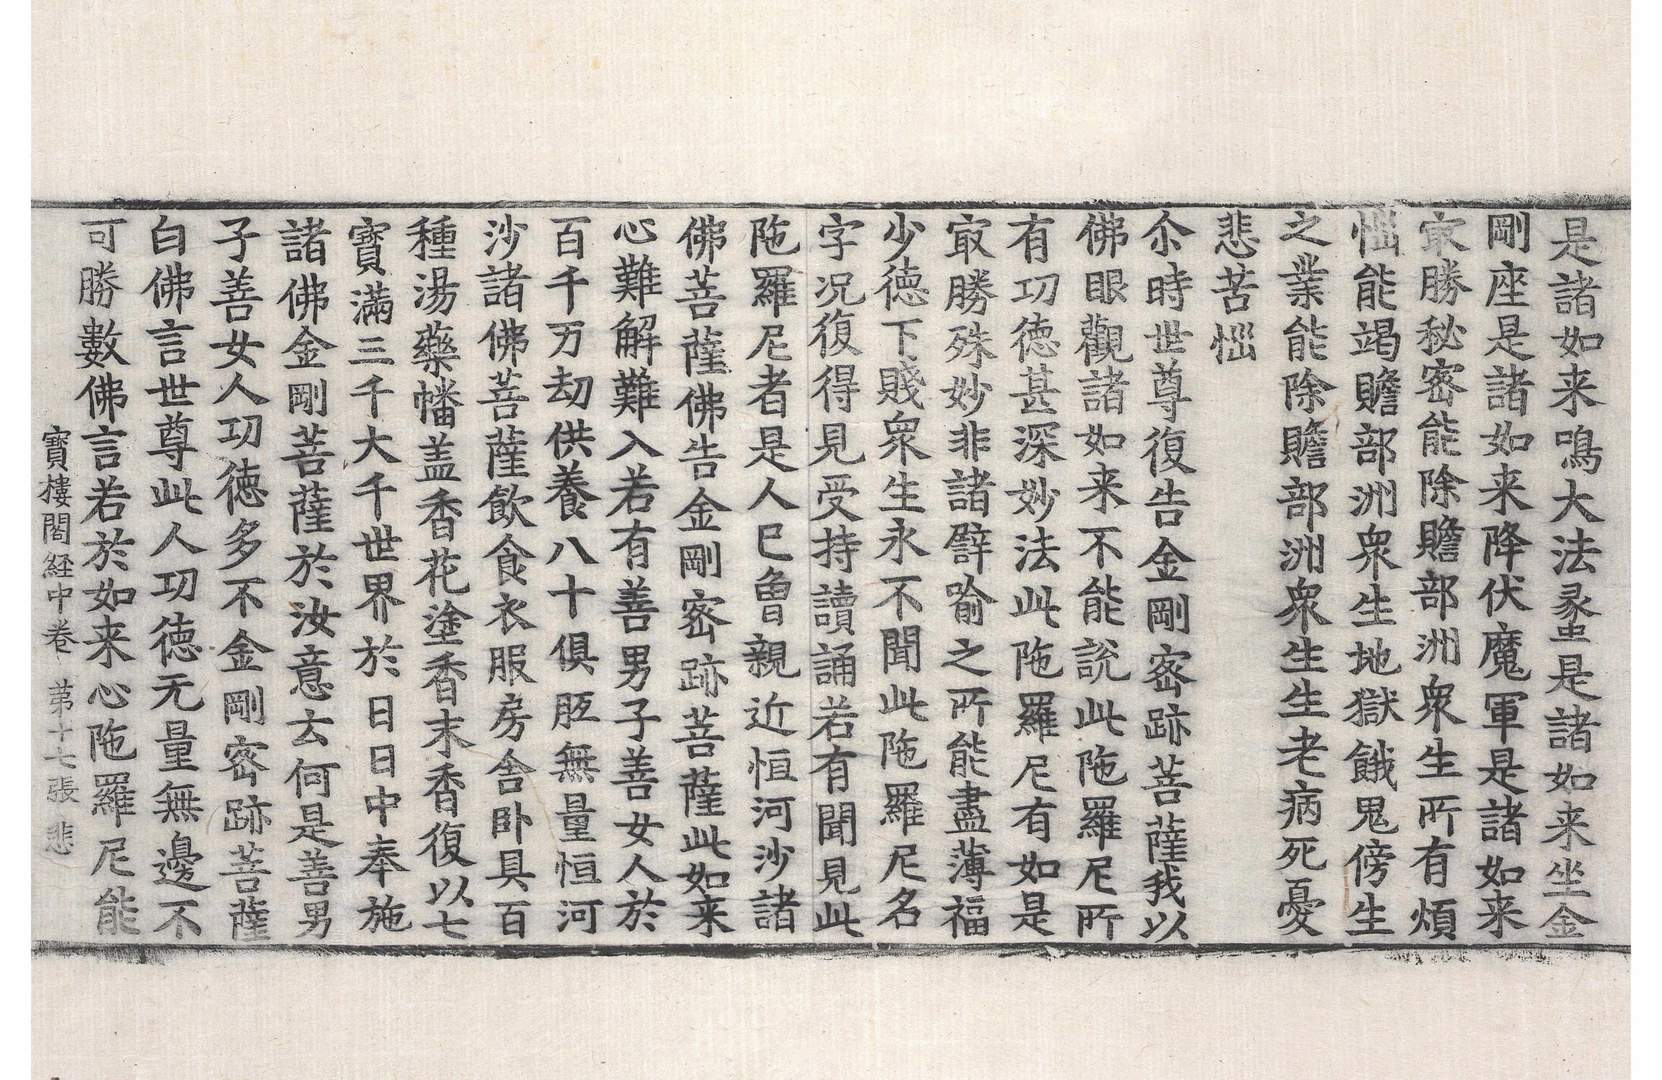 是諸如来鳴大法䗍是諸如来坐金
剛座是諸如来降伏魔軍是諸如来
㝡勝秘密能除贍部洲衆生所有煩
惱能竭贍部洲衆生地獄餓鬼傍生
之業能除贍部洲衆生生老病死憂
悲苦惱
尒時世尊復告金剛密跡菩薩我以
佛眼觀諸如来不能說此陁羅尼所
有功德甚深妙法此陁羅尼有如是
㝡勝殊妙非諸譬喻之所能盡薄福
少德下賤衆生永不聞此陁羅尼名
字况復得見受持讀誦若有聞見此
陁羅尼者是人已曾親近恒河沙諸
佛菩薩佛告金剛密跡菩薩此如来
心難解難入若有善男子善女人於
百千万劫供養八十俱胝無量恒河
沙諸佛菩薩飲食衣服房舎卧具百
種湯藥幡盖香花塗香末香復以七
寳滿三千大千世界於日日中奉施
諸佛金剛菩薩於汝意云何是善男
子善女人功德多不金剛密跡菩薩
白佛言世尊此人功德无量無邊不
可勝數佛言若於如来心陁羅尼能
寳樓閣経中卷 第十七張 悲